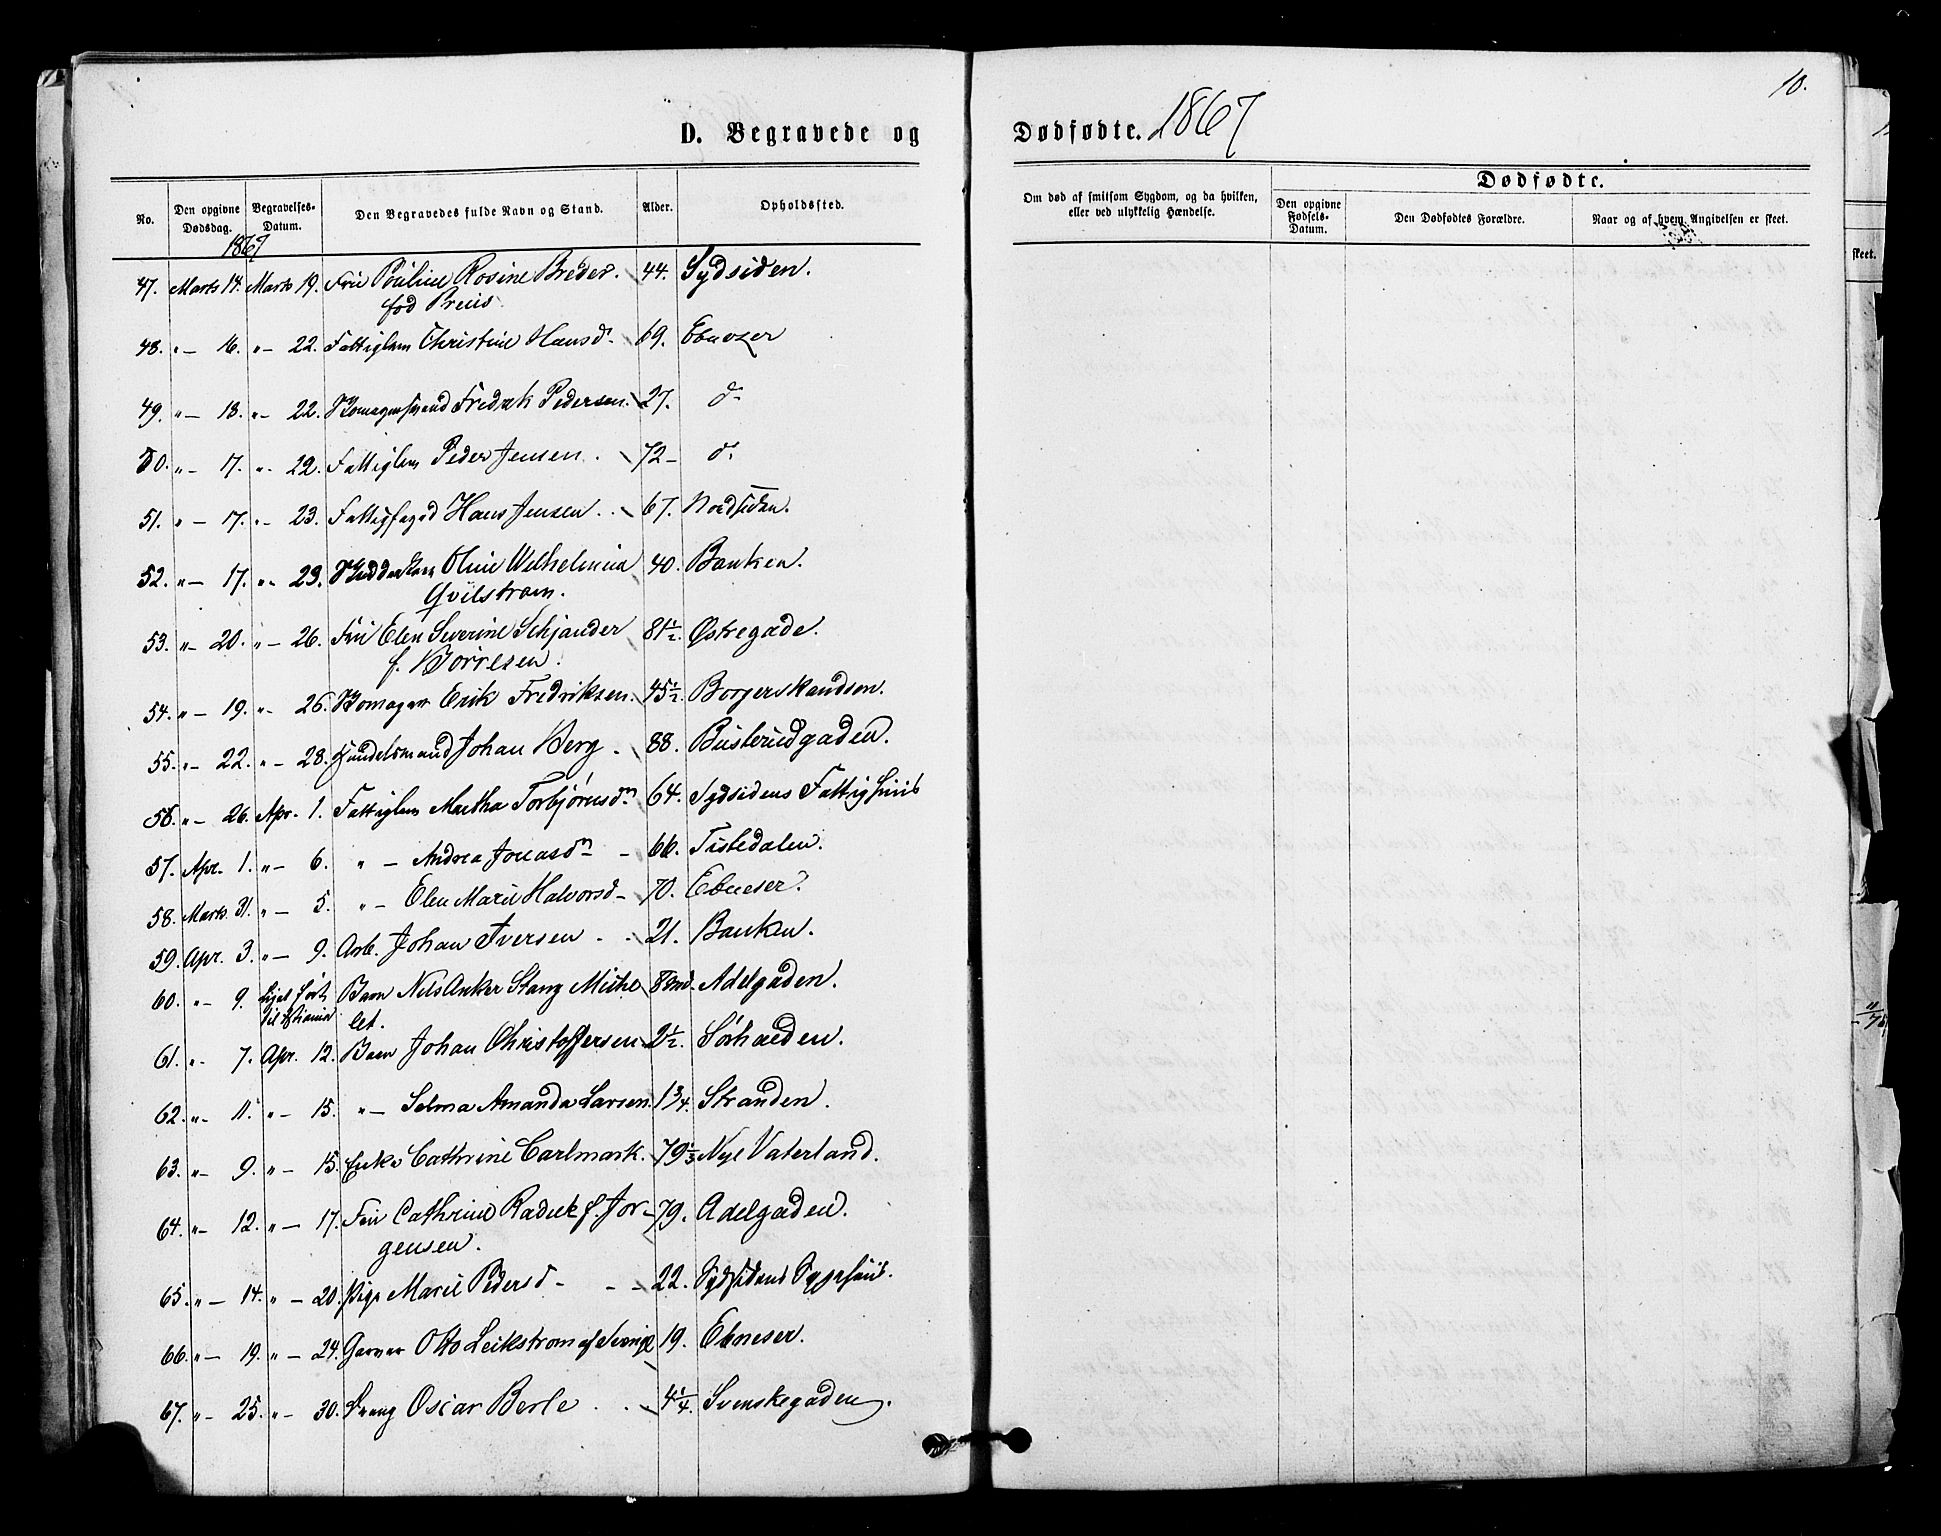 10.
D. Begravede og Dødfødte. 1867
No. Den opgivne Dødsdag. Begravelses-Datum. Den Begravedes fulde Navn og Stand. Alder. Opholdssted.
Om død af smitsom Sygdom, og da hvilken, eller ved ulykkelig Hændelse.
Dødfødte.
Den opgivne Fødsels-Datum. Den Dødfødtes Forældre. Naar og af hvem Angivelsen er skeet.
skeet.
1867
47. Marts 14. Marts 19. Fru Pauline Rosine Breder. 44. Sydsiden.
fød Preus.
48. " — 16. " — 22. Fattiglem Christine Hansd. 69. Ebenezer
49. " — 18. " — 22. Fredrik Pedersen. 27. d
50. " — 17. " — 22. Fattiglem Peder Jensen. 72 — d
51. " — 17. " — 23. Fattigfoged Hans Jensen. 67. Nordsiden.
52. " — 17. " — 23. Oline Wilhelmina 40. Banken.
Qvilstrøm.
53. " — 20. " — 26. Fru Elen Severine Schjander 81½. Østregade.
f. Børresen.
54. " — 19. " — 26. Erik Fredriksen. 45½. Borgerskandsen.
55. " — 22. " — 28. Handelsmand Johan Berg. 88. Busterudgaden.
56. " — 26. Apr. 1. Fattiglem Martha Torbjørnsd. 64. Sydsidens Fattighuus
57. Apr. 1. " — 6. " — Andrea Jonasd. — 66. Tistedalen.
58. Marts 31. " — 5. " — Elen Marie Halvorsd — 70. Ebneser.
59. Apr. 3. " — 9. Arb. Johan Iversen. 21. Banken.
60. " — 9. Liget ført Barn Nils Anker Stang Miche 8 md. Adelgaden.
til Xtiania let.
61. " — 7. Apr. 12. Barn Johan Christoffersen 2½. Sørhalden.
62. " — 11. " — 15. " — Selma Amanda Larsen. 1¾. Stranden.
63. " — 9. " — 15. Enke Cathrine Carlmark. 79⅓ Nye Vaterland.
64. " — 12. " — 17. Fru Cathrine f. Jør- 79. Adelgaden.
gensen.
65. " — 14. " — 20. Pige Marie Pedersd — 22. Sydsidens Sygehuus.
66. " — 19. " — 24. Garver Otto Leikstrøm af Sverige 19. Ebneser.
67. " — 25. " — 30. Dreng Oscar Berle. 4¼. Svenskegaden.